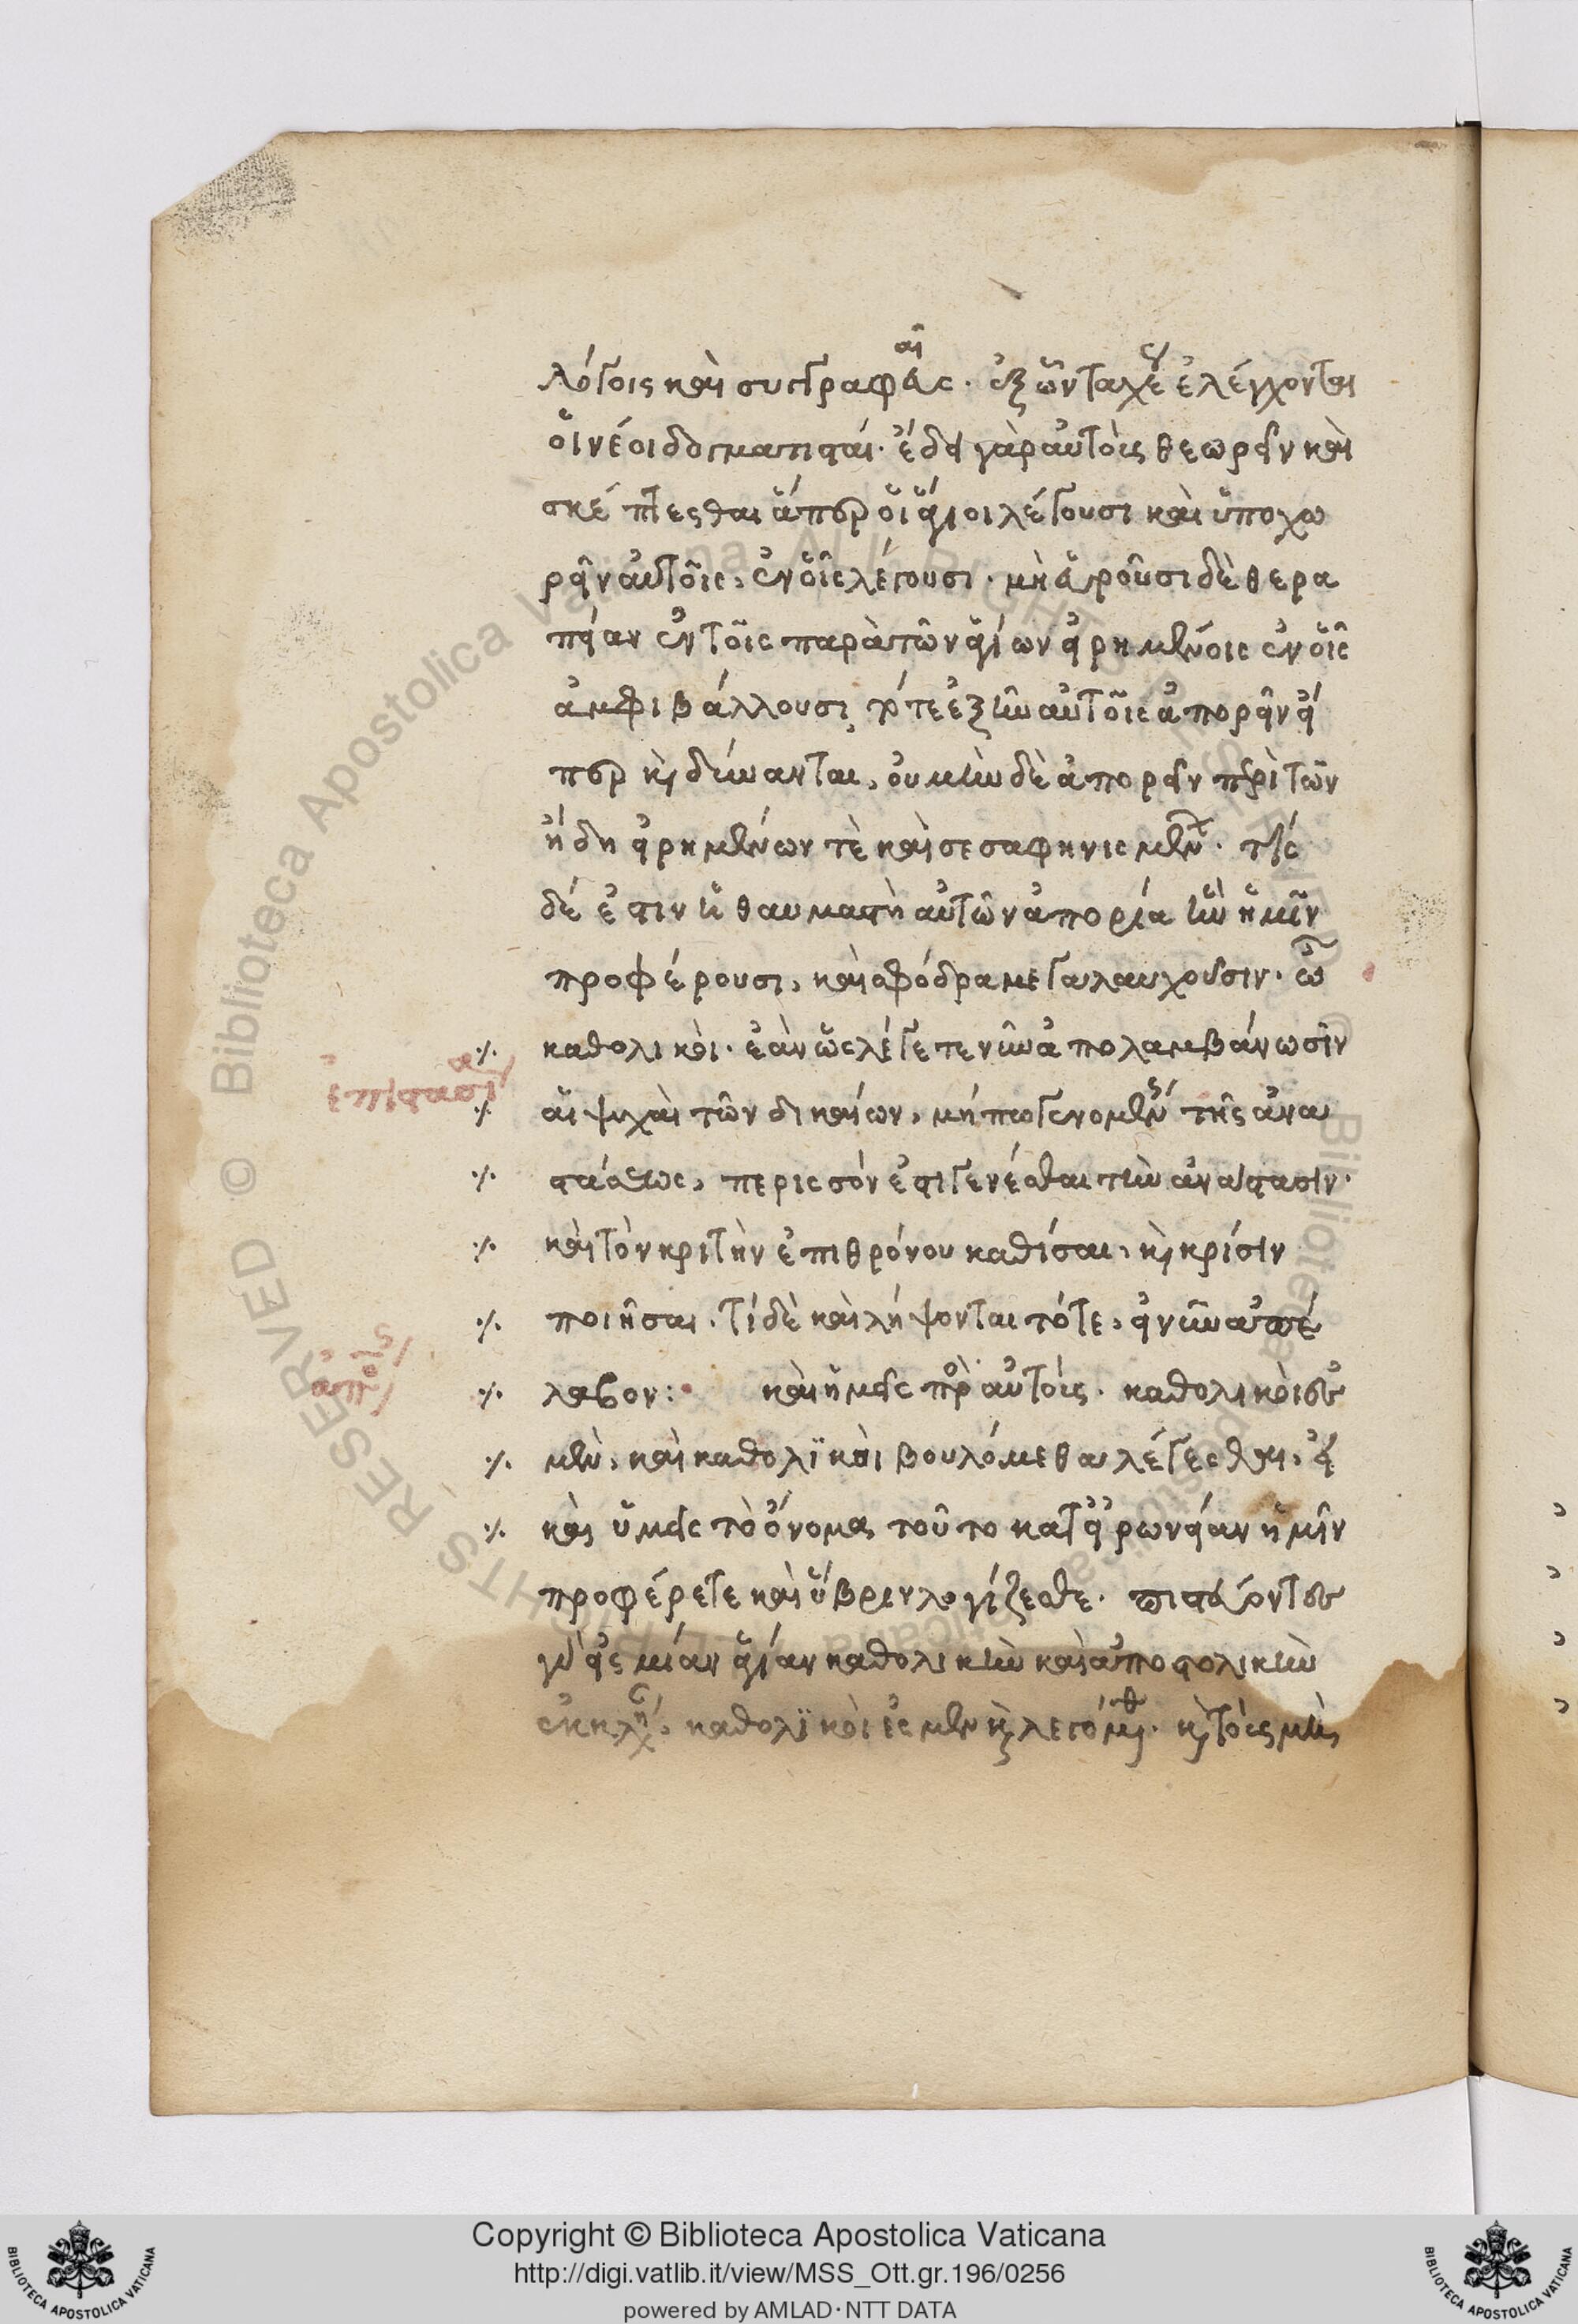 λόγοις καὶ συγγραφαῖς. ἐξ ὧν πανταχοῦ ἐλέγχονται
οἱ νέοι δογματισταί. ἔδει γὰρ αὐτοὺς θεωρεῖν καὶ
σκέπτεσθαι ἅπερ οἱ ἅγιοι λέγουσι καὶ ὑποχω
ρεῖν αὐτοῖς, ἐν οἷς λέγουσι. μὴ εὑροῦσι δὲ θερα
πείαν ἐν τοῖς παρὰ τῶν ἁγίων εἰρημένοις ἐν οἷς
ἀμφιβάλλουσι, τότε ἐξῆν αὐτοῖς ἀπορεῖν εἴ
περ καὶ δύνανται, οὐ μὴν δὲ ἀπορεῖν περὶ τῶν
ἤδη εἰρημένων τὲ καὶ σεσαφηνισμένων. τίς
δέ ἐστιν ἡ θαυμαστὴ αὐτῶν ἀπορία ἣν ἡμῖν
προφέρουσι, καὶ σφόδρα μεγαλαυχοῦσιν. ὦ
καθολικοὶ. ἐὰν ὡς λέγετε νῦν ἀπολαμβάνωσιν
αἱ ψυχαὶ τῶν δικαίων, μήπω γενομένης τῆς ἀνα
στάσεως, περισσόν ἐστι γενέσθαι τὴν ἀνάστασιν.
καὶ τὸν κριτὴν ἐπὶ θρόνου καθίσαι, καὶ κρίσιν
ποιῆσαι. τί δὲ καὶ λήψονται τότε, εἰ νῦν ἀπέ
λαβον: καὶ ἡμεῖς πρὸς αὐτούς. καθολικοὶ ἐσ
μὲν, καὶ καθολϊκοὶ βουλόμεθα λέγεσθαι, εἰ
καὶ ὑμεῖς τὸ ὄνομα τοῦτο κατ' εἰρωνείαν ἡμῖν
προφέρετε καὶ ὕβριν λογίζεσθε. πιστεύοντες
γὰρ εἰς μίαν ἁγίαν καθολικὴν καὶ ἀποστολικὴν
ἐκκλησίαν, καθολϊκοὶ ἐσμὲν καὶ λεγόμεθα. καὶ τοὺς μὴ
Copyright © Biblioteca Apostolica Vaticana
http://digi.vatlib.it/view/MSS_Ott.gr.196/0256
powered by AMLAD·NTT DATA